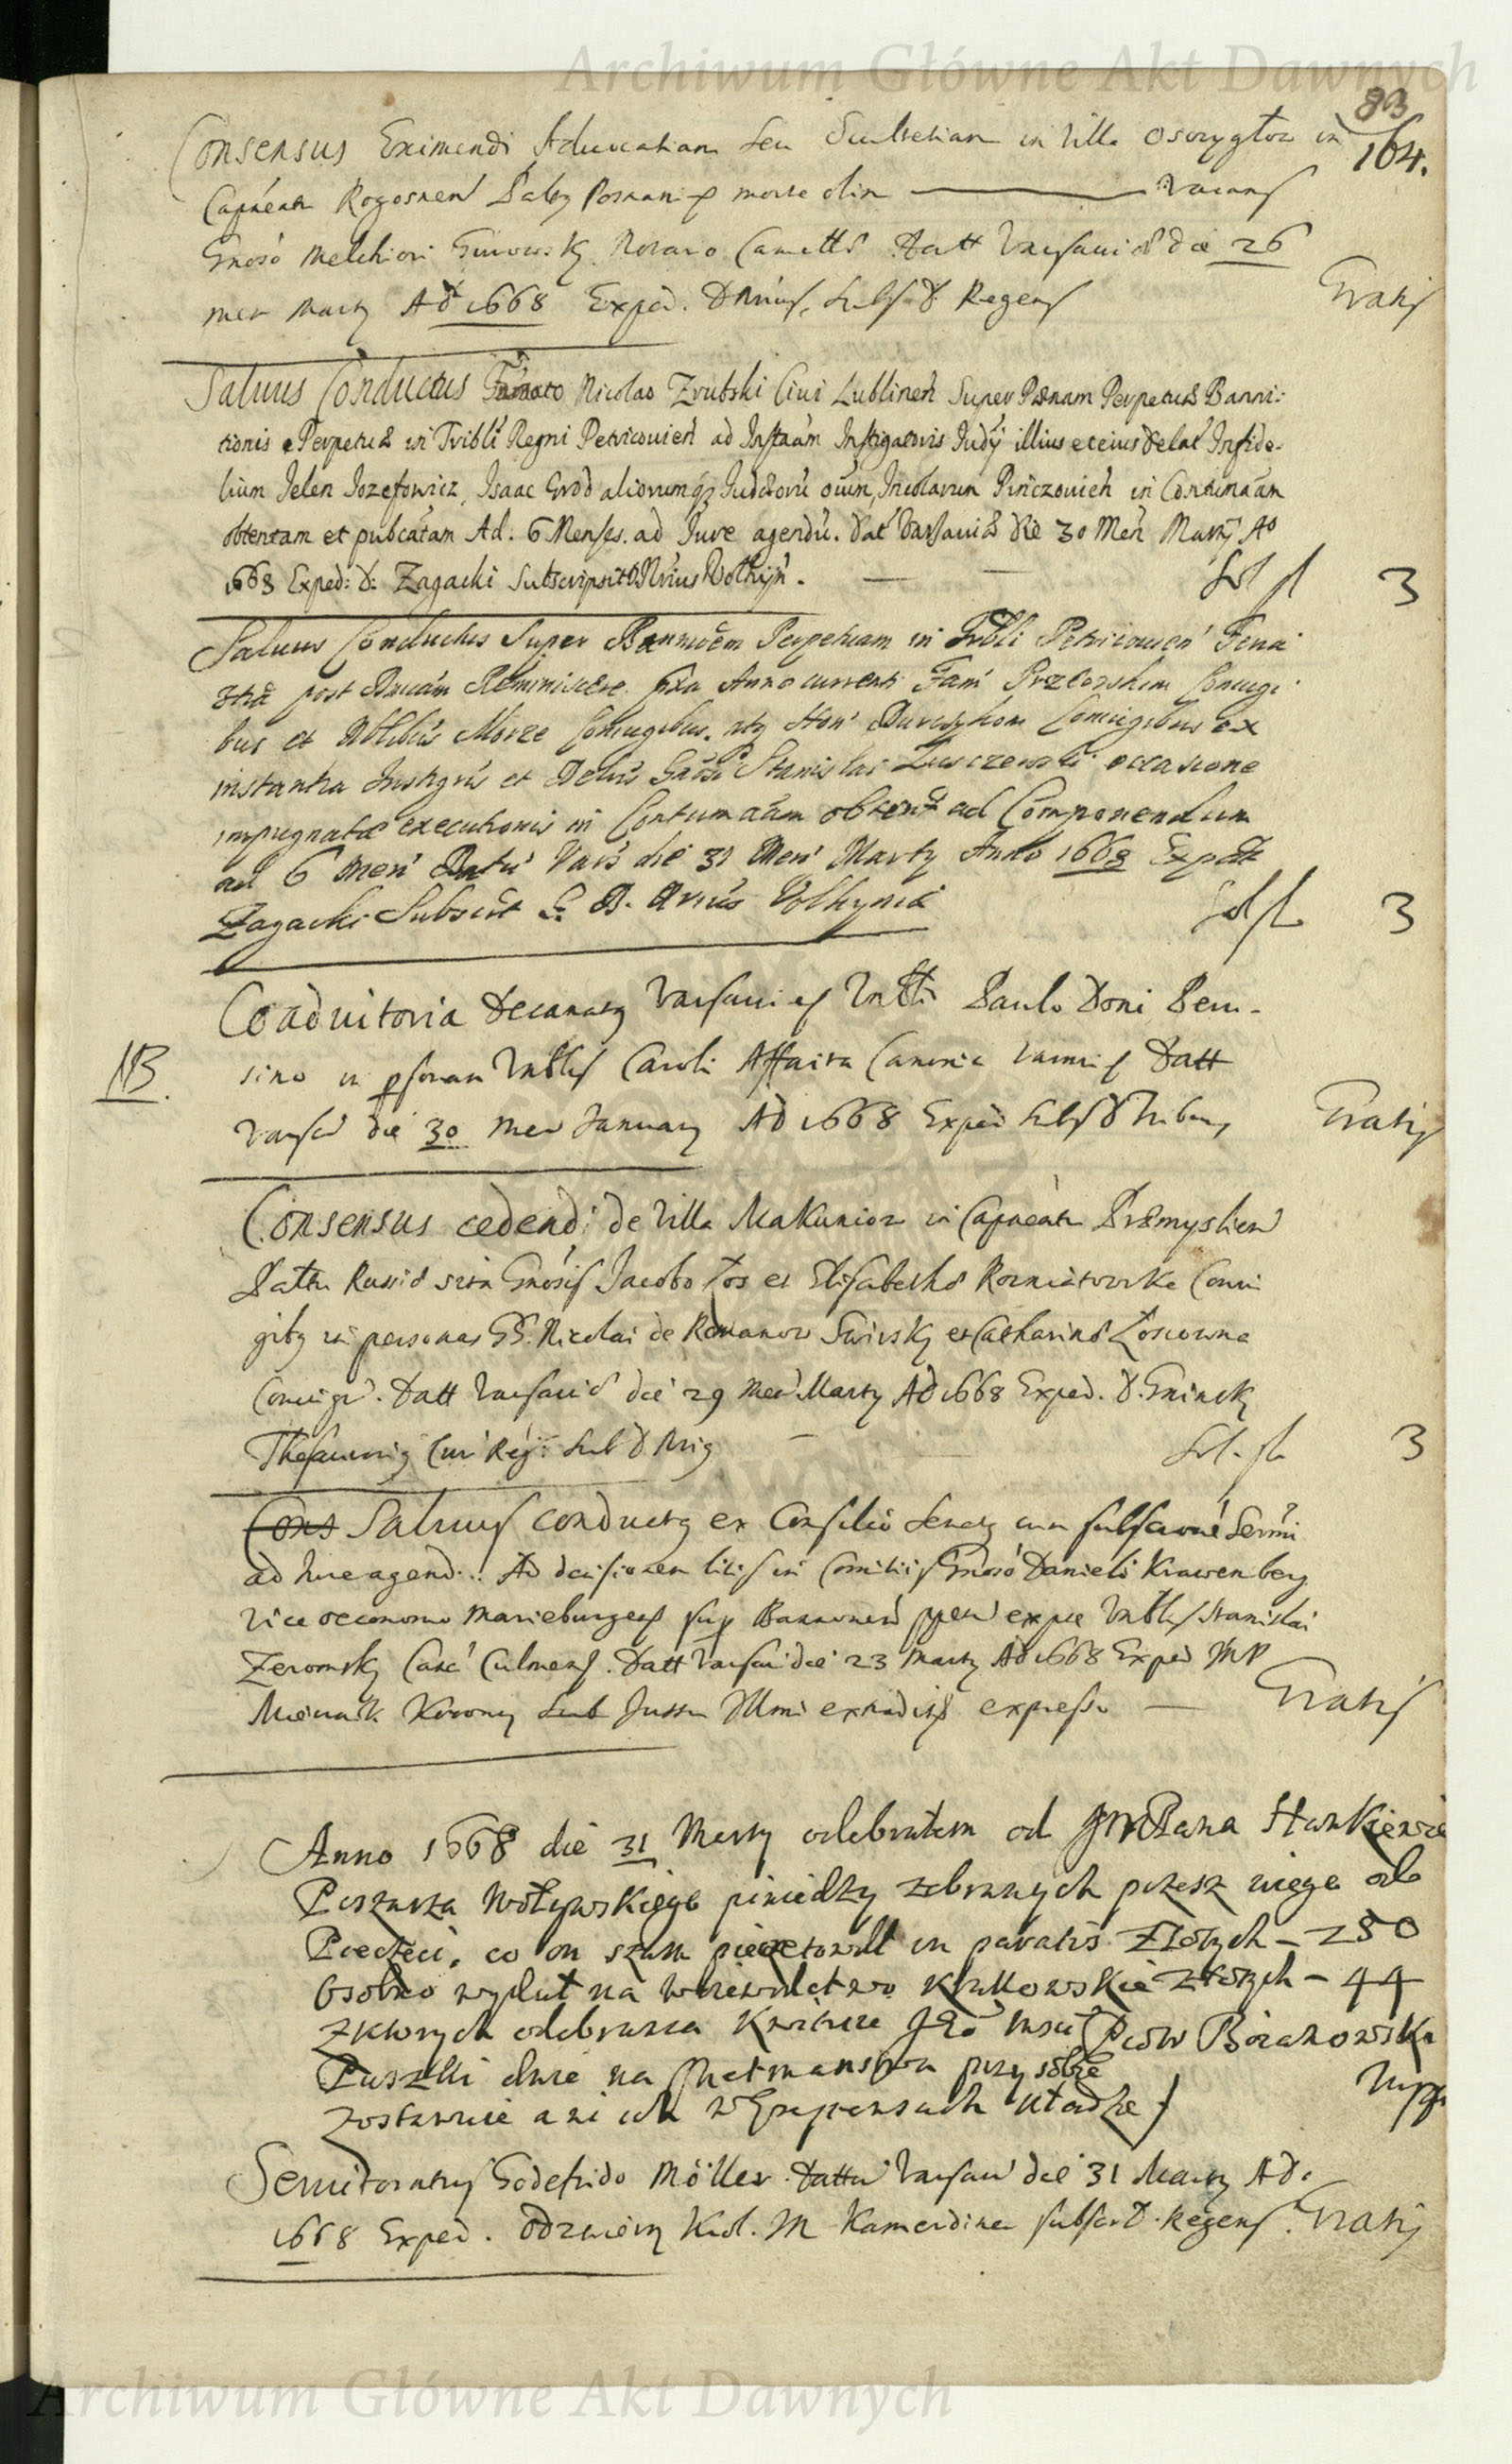 Archiwum Główne Akt Dawnych
83
164.
Consensus Eximendi Aduocatiam seu Scultetiam in villa in
Capneatu Rogosnen Palatus Posnaniens morte olim ——— vacans
Gnoso Melchiori Gurowsky Notario Camelli Datt Varsauiæ die 26
men Marty Ad 1668 Exped. D Arius, Subs D Regens Gratis
Saluus Conductus Famato Nicolao Zrubski Ciui Lublinen Super Pænam Perpetuæ Banni:
tionis e Perpetuæ in Tribli Regni Petricouien ad Instaam Instigatoris Judÿ illius et eius Delat Infide-
lium Jelen Jozefowicz, Isaac Grod aliorumqz Judæorū oium, Incolarum Pinczouien in Contumaam
obtentam et pubcatam Ad. 6 Menses. ad Jure agendū. Dat Varsauiæ Die 30 Men Martÿ Ao
1668 Exped: D: Zagacki Subscripsit D Arius Volhÿn. — — Sol fl 3
Saluus Conductus Super Bannioem Perpetuam in Tribli Petricouien Feria
3tia post Dnicam Reminiscere pxa Anno currenti Fam Coniugi
bus et Nblibus Morze Coniugibus, atq Hon Coniugibus ex
instantia Instigris et Delris Gnosi Stanislai occasione
impugnatæ executionis in Contumaam obtent ad Componendum
ad 6 Men Datū Vars die 31 Men Marty Anno 1668 Exped
Zagacki Subscrit G. D. Arius Volhyniæ Sol fl 3
NB. Coadiutoria Decanatus Varsauiens Vnbli Paulo Doni Peru-
sino in psonam Vnblis Caroli Affaita Canonic Datt
Varsæ die 30 Men January Ad 1668 Exped Subs D Gratis
Consensus cedendi de Villa Makuniow in Capneatu Præmyslien
Pallu Russiæ sita Gnosis Jacobo Łos et Elisabethæ Rozniatowska Coniu
gibus in personas GG. Nicolai de Romanow Swirsky et Catharinæ Łosiowna
Coniugu. Datt Varsauiæ die 29 Men Marty Ad 1668 Exped. D. Gninsky
Thesaurarius Cur Reg: Sub D Arius — Sol. fl 3
Cons Saluus conductus ex Consilio Senatus cum subscrione Sermi
ad Jure agend.. Ad decisionem litis in Comitiis Gnoso Danieli Krawenberg
Vice oeconomo Marieburgens sup Bannionem ppetu ex pte Vnblis Stanislai
Zeromsky Cast Culmens. Datt Varsau die 23 Marty Ad 1668 Exped MP
Miecznik Koronny Sub Jussu Illmi extraditus expresso — Gratis
Anno 1668 die 31 Marty odebrałem od JM Pana Stankiewic
Pisarza Wołynskiego pieniedzy zebranych przesz niego od
Pieczęci, co on szam pieczetowal in paratis Złotych - 250
Osobno wydał na Woiewodctwo Krakowskie złotych - 44
z ktorych odebrana
Puszki dwie na Hetmanstwa przy sobie
zostawuie a ni ich w Expensach kładzie
Seruitoratus Godefrido Möller. Datt Varsau die 31 Marty AD.
1668 Exped. Odzwierny Krol. M Kamerdiner subscr D. Regens. Gratis
Archiwum Główne Akt Dawnych